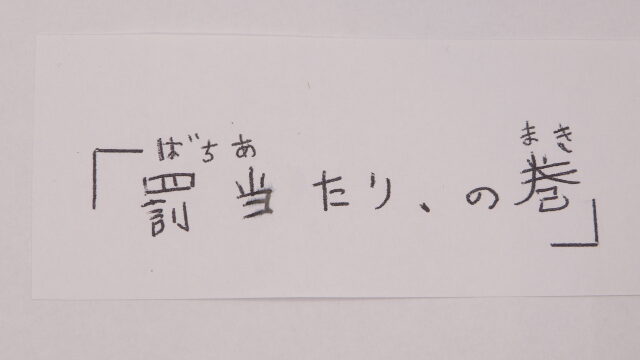 ばちあ まき
「罰当たり、の巻」